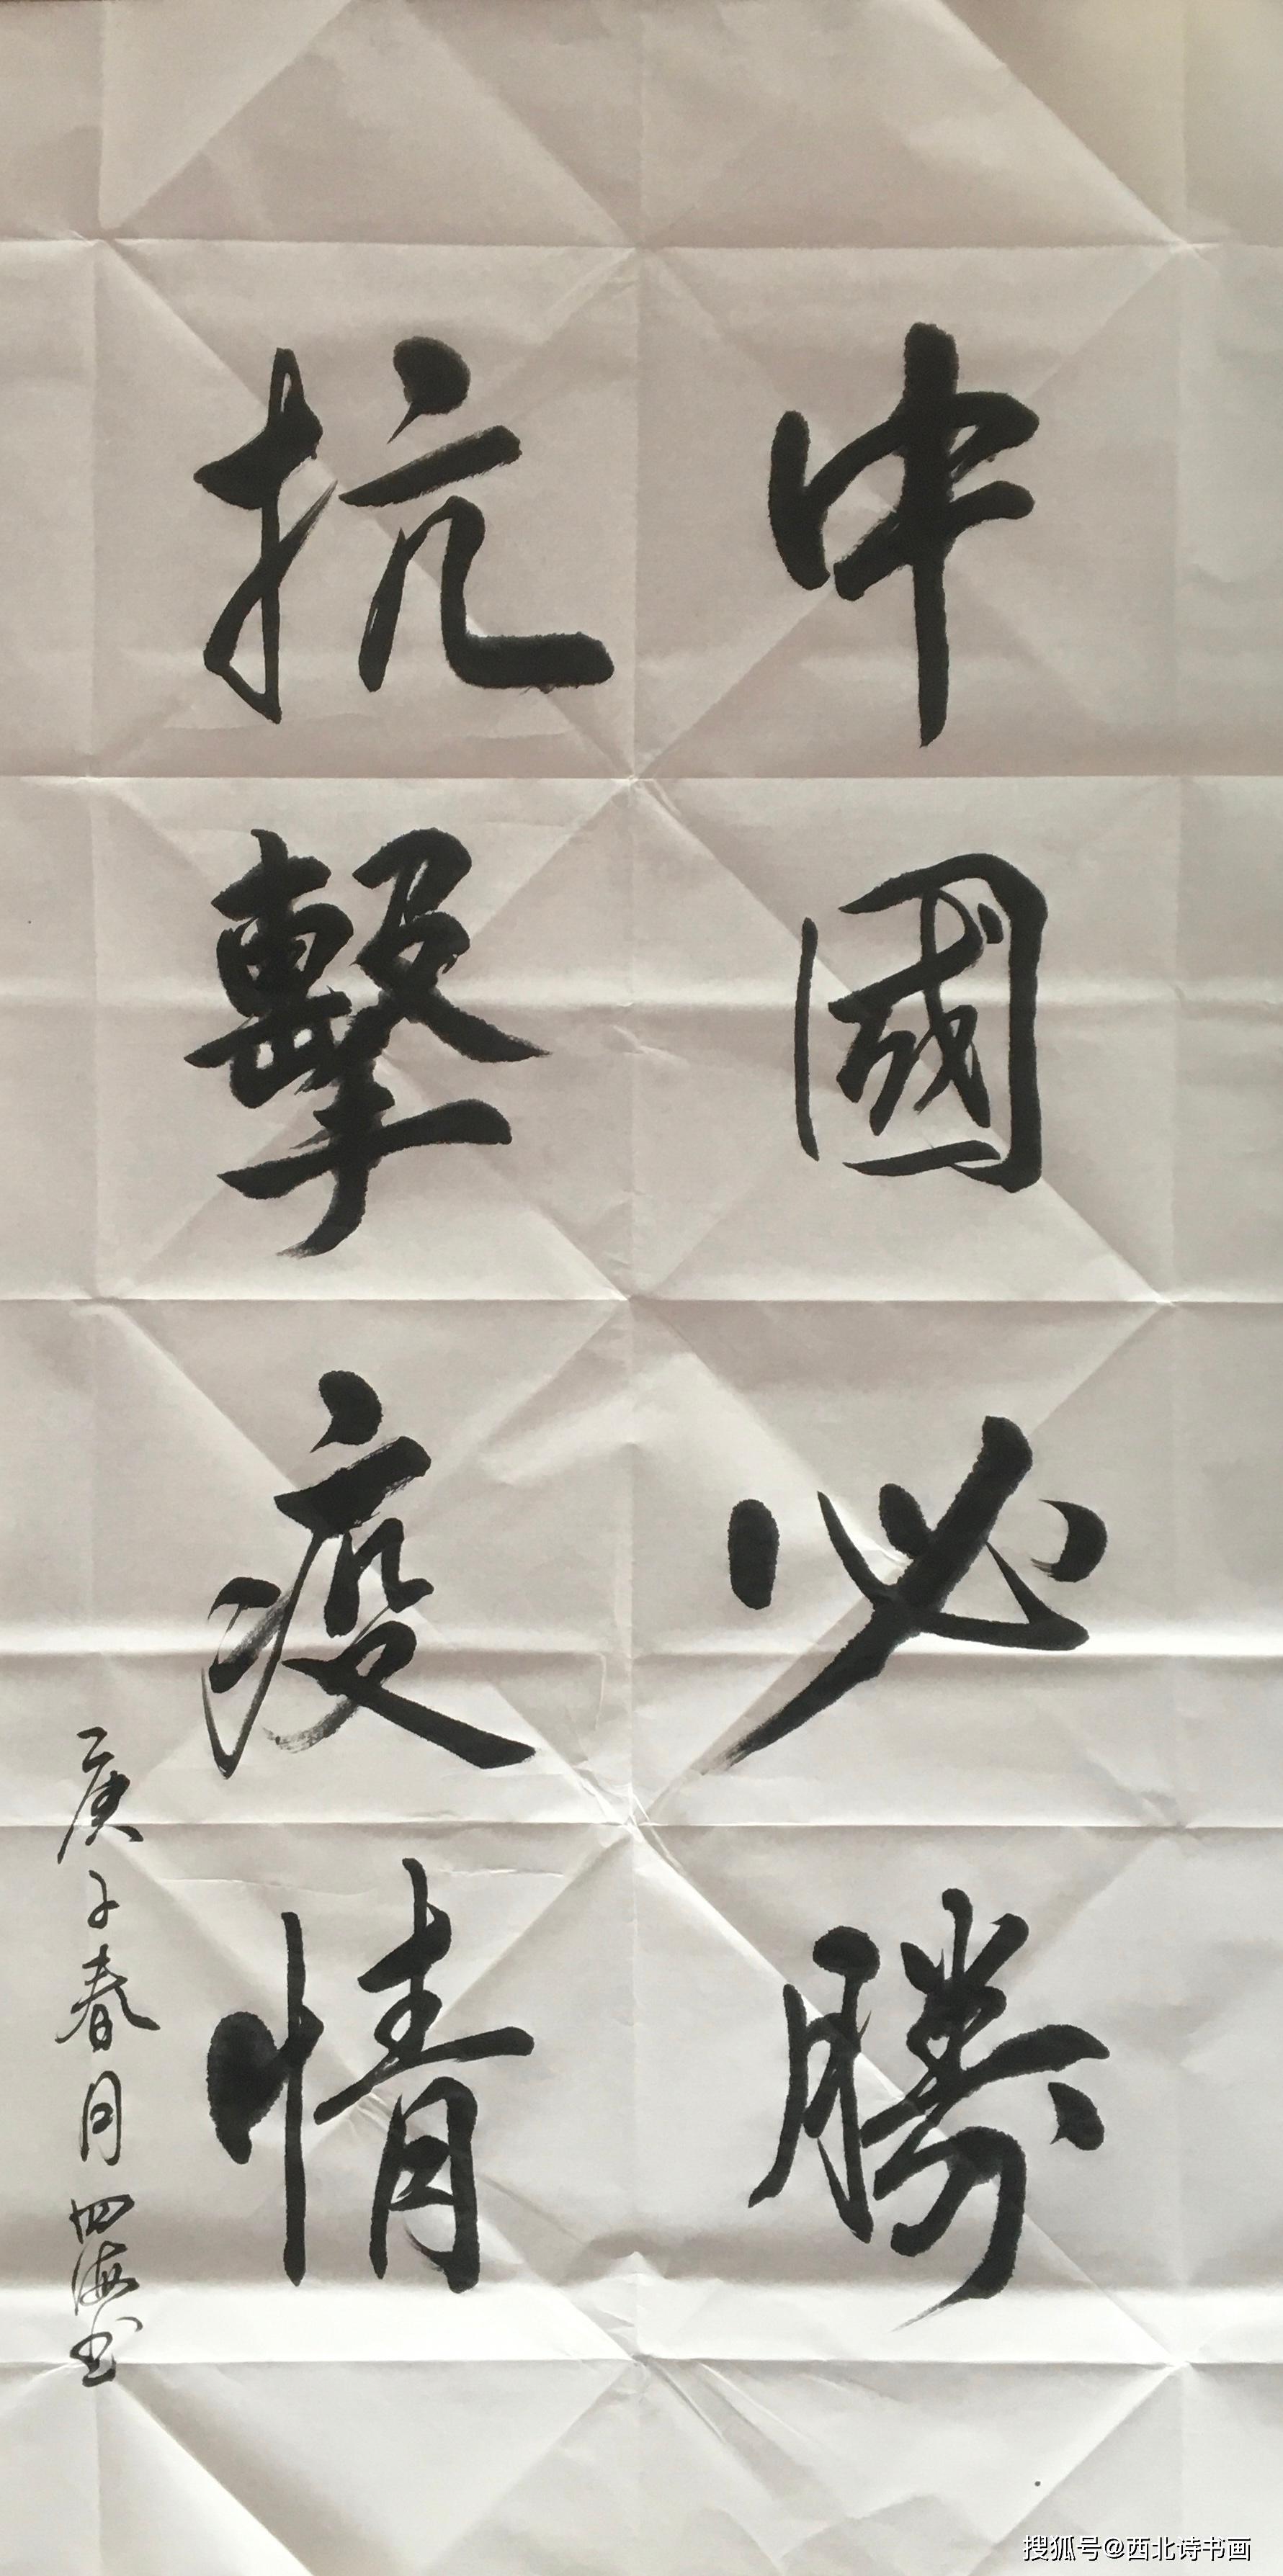 中國必勝
抗擊疫情
庚子春月四海书
搜狐号@西北诗书画